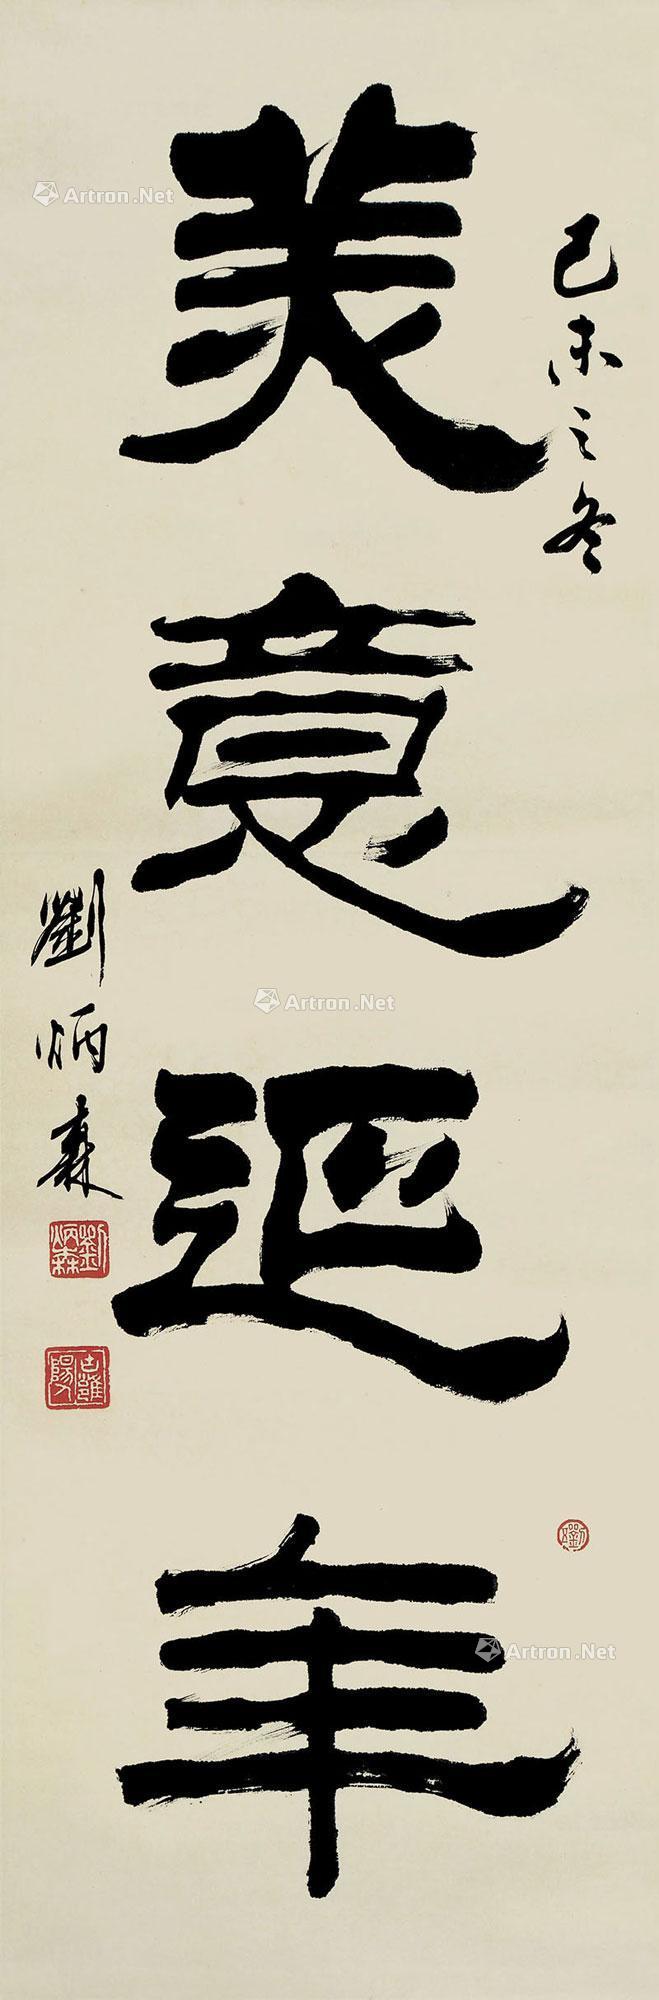 己未之冬
美意延年
劉炳森
劉炳森
Artron.Net
Artron.Net
Artron.Net